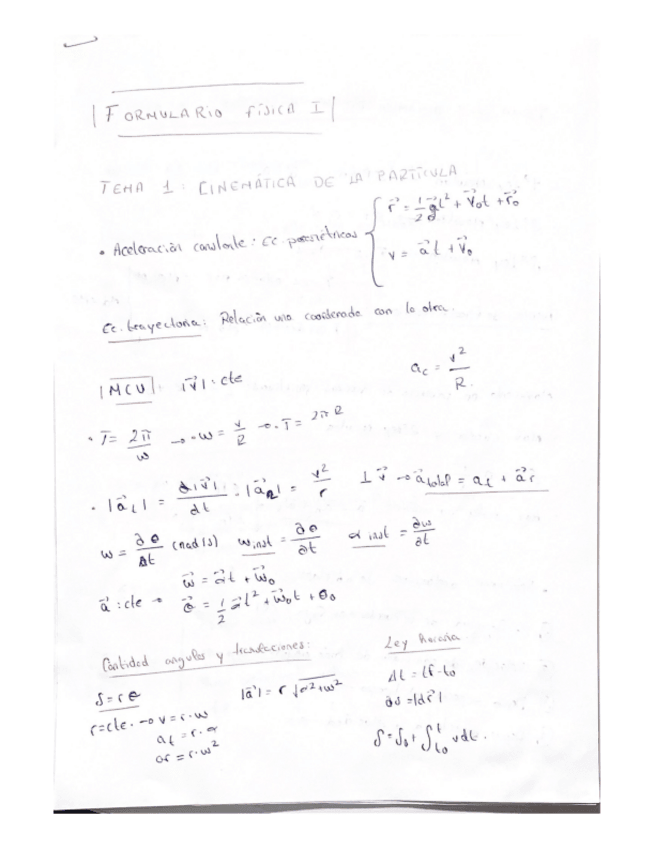 |FORMULARIO FÍSICA I|
TEMA 1: CINEMÁTICA DE LA PARTÍCULA
• Aceleración constante: Ec. paramétricas { r⃗ = 1/2 a⃗t² + v⃗₀t + r⃗₀
v = a⃗t + v⃗₀
Ec. trayectoria: Relación una coordenada con la otra.
|MCU|: |v⃗|: cte a_c = v²/R.
• T = 2π/ω → • ω = v/R → • T = 2πR
• |a⃗_t| = d|v⃗|/dt : |a⃗_n| = v²/r ⊥ v⃗ → a⃗_total = a_t + a⃗_r
ω = ∂θ/Δt (rad/s) ω_inst = ∂θ/∂t α inst = ∂ω/∂t
ω⃗ = α⃗t + ω⃗₀
α⃗: cte → θ⃗ = 1/2 α⃗t² + ω⃗₀t + θ₀
Cantidad angulos y traslaciones: Ley horaria
S = rθ |a⃗| = r √α²+ω² Δt = tf - t₀
r = cte. → v = r·ω ∂s = |dr⃗|
a_t = r·α S = S₀ + ∫t₀ᵗ v dt.
ar = r·ω²